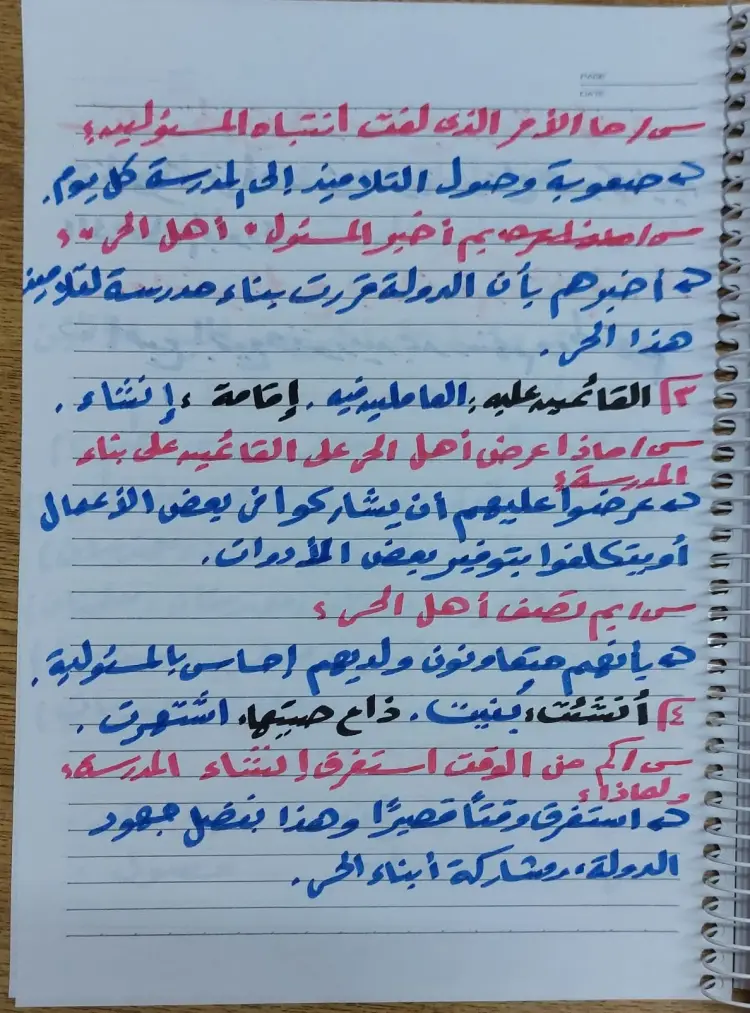 PAGE
DATE
س/ ما الأمر الذى لفت انتباه المسئولين؟
صعوبة وصول التلاميذ إلى المدرسة كل يوم.
س/ بم أخبر المسئول " أهل الحى "؟
أخبرهم بأن الدولة قررت بناء مدرسة لتلاميذ
هذا الحى.
٣ القائمين عليه: العاملين فيه. إقامة: إنشاء.
س/ ماذا عرض أهل الحى على القائمين على بناء
المدرسة؟
عرضوا عليهم أن يشاركوا فى بعض الأعمال
أو يتكلفوا بتوفير بعض الأدوات.
س/ بم تصف أهل الحى؟
بأنهم متعاونون ولديهم إحساس بالمسئولية.
٤ أنشئت: بُنيت. ذاع صيتها: اشتهرت.
س/ كم من الوقت استغرق إنشاء المدرسة؟
ولماذا؟
استغرق وقتًا قصيرًا وهذا بفضل جهود
الدولة، ومشاركة أبناء الحى.